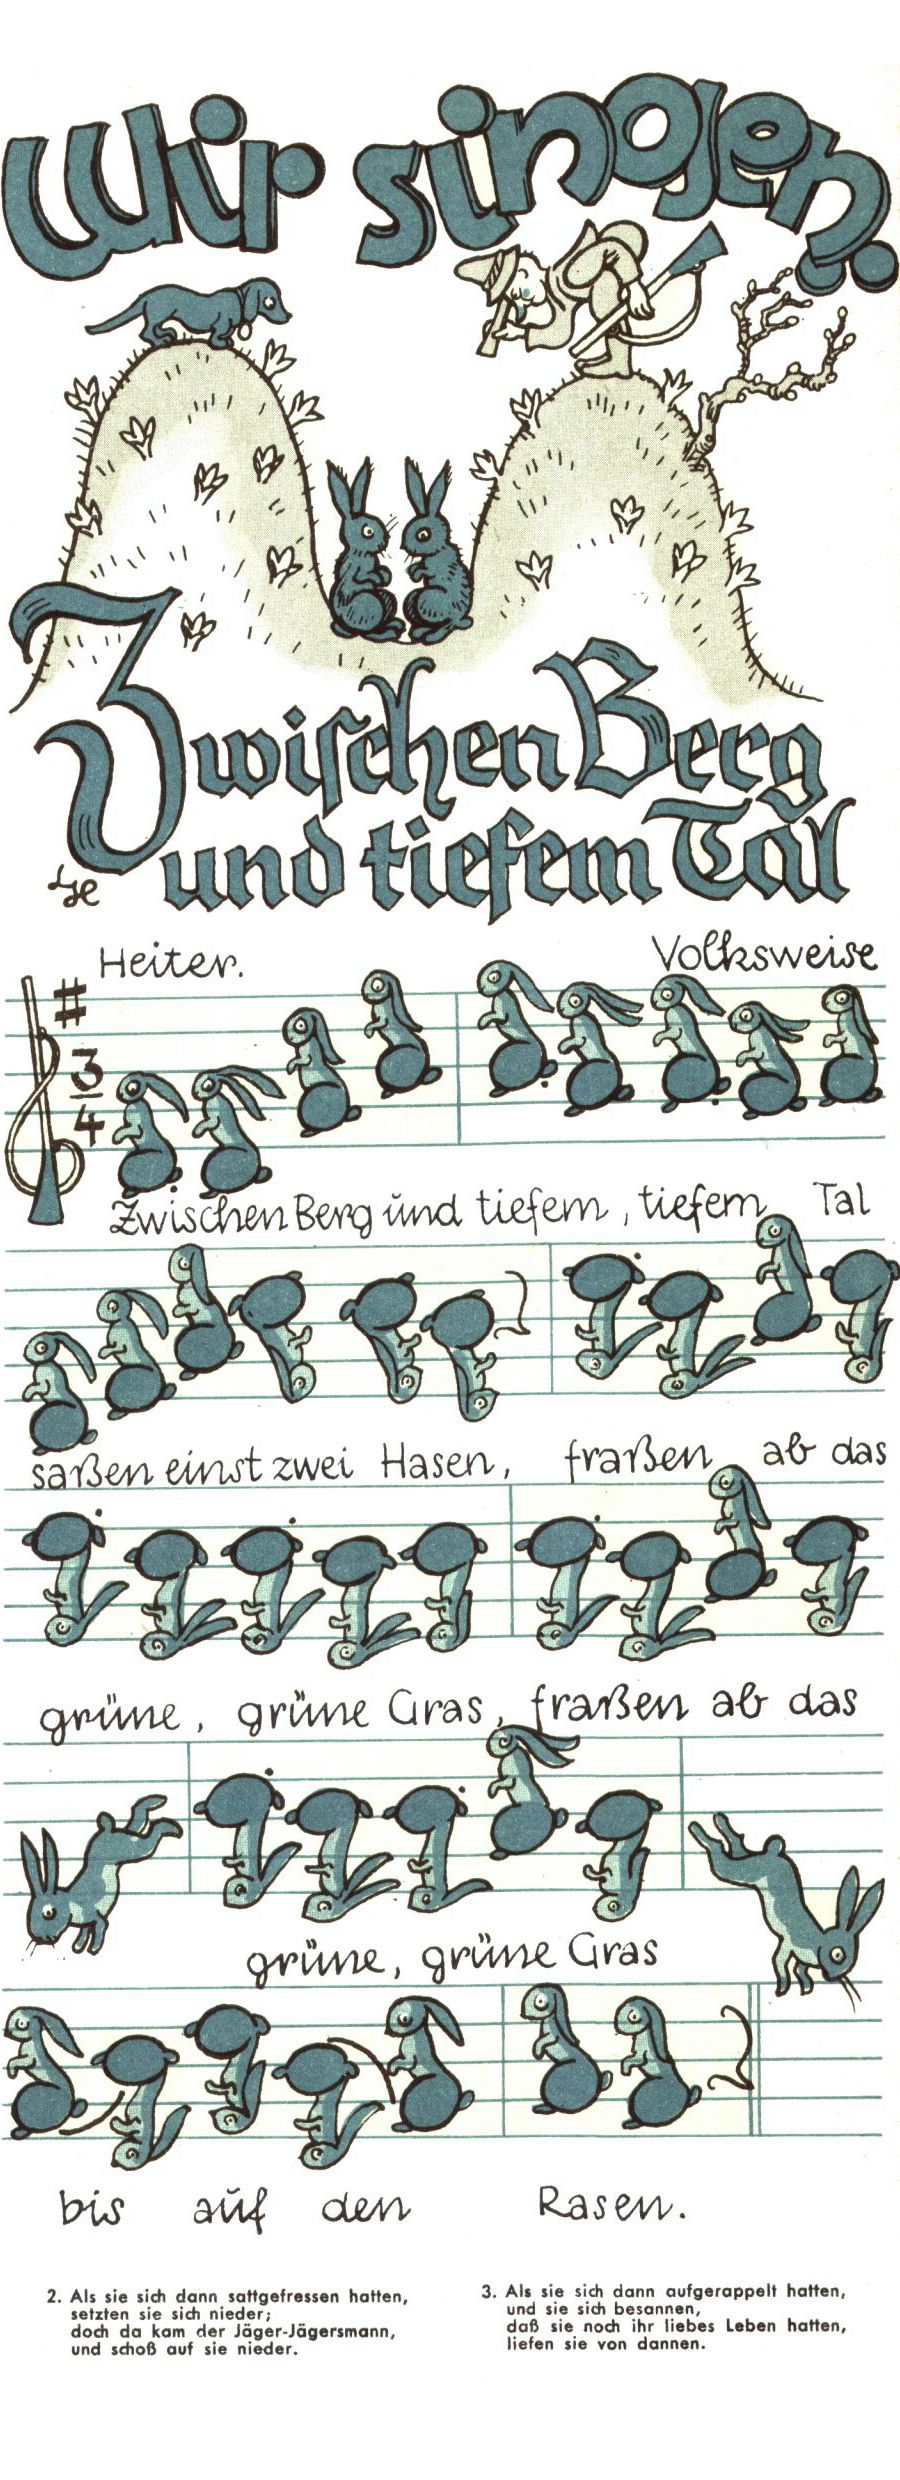 Wir singen:
Zwischen Berg
und tiefem Tal
Heiter.
Volksweise
3
4
Zwischen Berg und tiefem, tiefem Tal
saßen einst zwei Hasen, fraßen ab das
grüne, grüne Gras, fraßen ab das
grüne, grüne Gras
bis auf den Rasen.
2. Als sie sich dann sattgefressen hatten,
setzten sie sich nieder;
doch da kam der Jäger-Jägersmann,
und schoß auf sie nieder.
3. Als sie sich dann aufgerappelt hatten,
und sie sich besannen,
daß sie noch ihr liebes Leben hatten,
liefen sie von dannen.